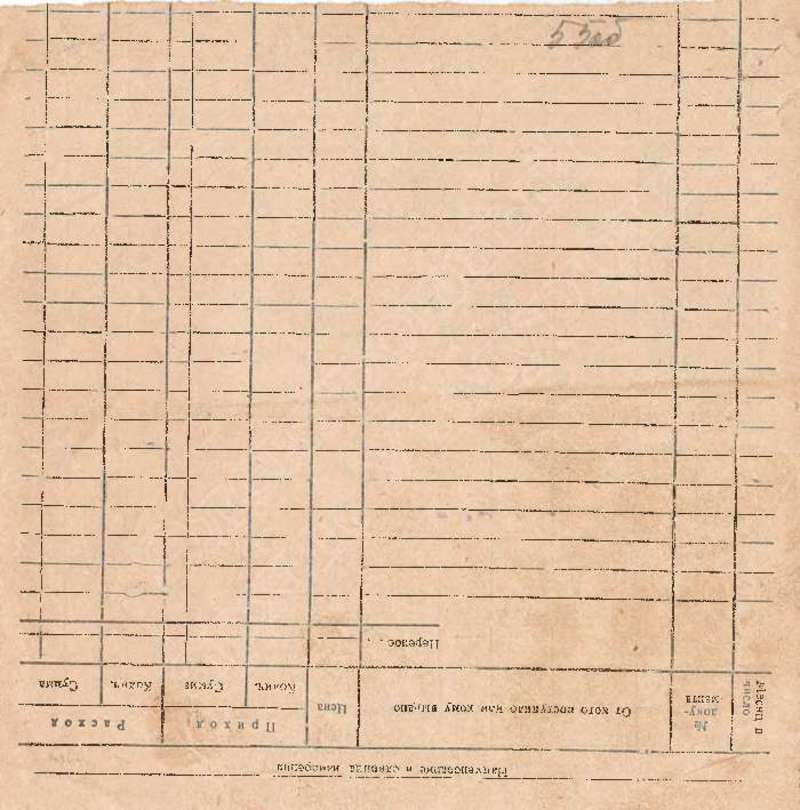 Наименование и единица измерения
Месяц и число
№ доку-
мента
От кого поступило или кому выдано
Цена
Приход
Расход
Колич.
Сумма
Колич.
Сумма
Перенос . . .